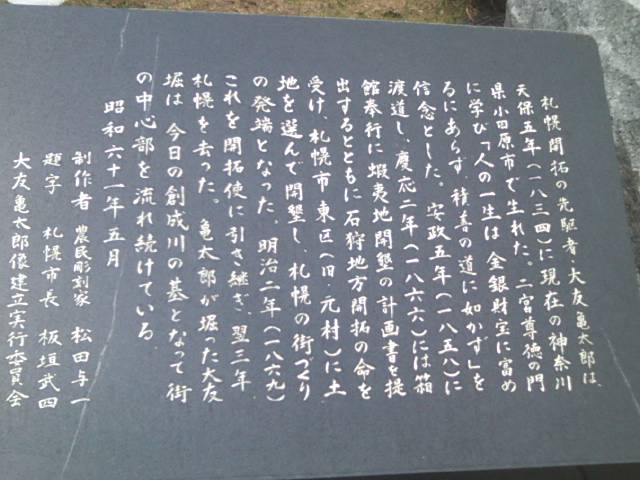 札幌開拓の先駆者・大友亀太郎は、
天保五年(一八三四)に現在の神奈川
県小田原市で生れた。二宮尊徳の門
に学び「人の一生は 金銀財宝に富め
るにあらず 積善の道に如かず」を
信念とした。安政五年(一八五八)に
渡道し、慶応二年(一八六六)には箱
館奉行に 蝦夷地開墾の計画書を提
出するとともに石狩地方開拓の命を
受け、札幌市東区(旧・元村)に土
地を選んで開墾し、札幌の街づくり
の発端となった。明治二年(一八六九)
これを開拓使に引き継ぎ、翌三年
札幌を去った。亀太郎が堀った大友
堀は 今日の創成川の基となって街
の中心部を流れ続けている
昭和六十一年五月
制作者 農民彫刻家 松田与一
題字 札幌市長 板垣武四
大友亀太郎像建立実行委員会